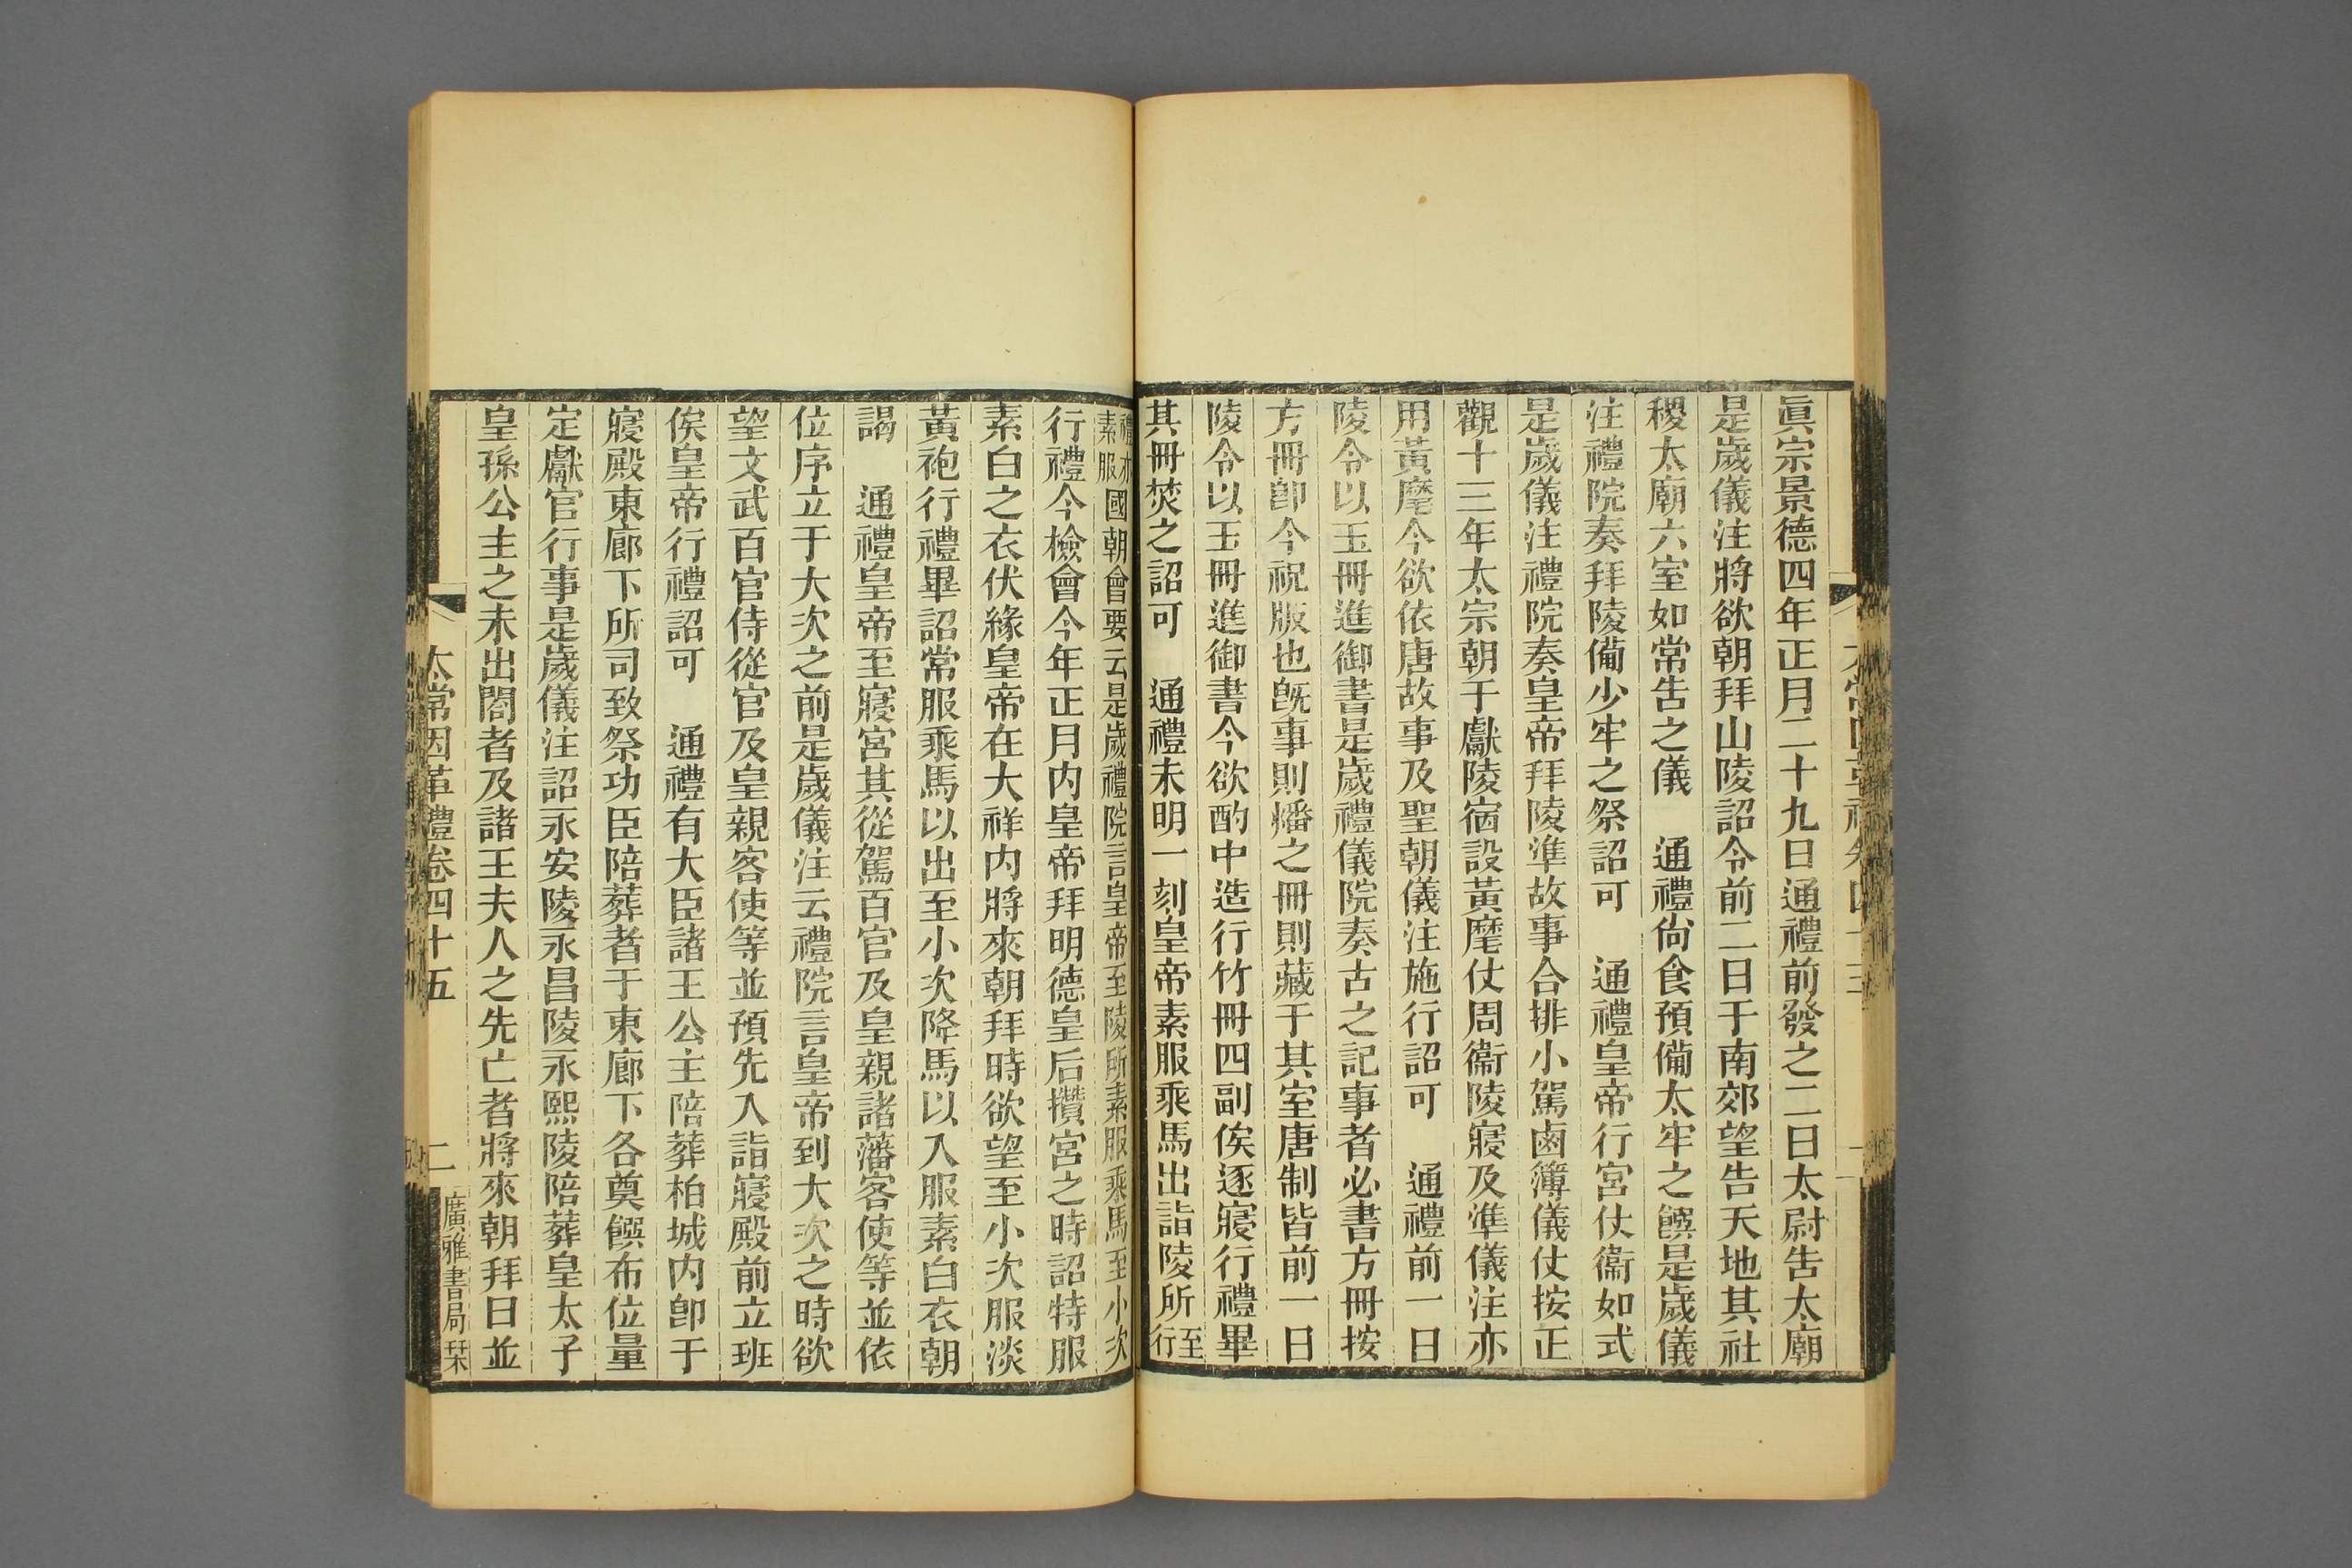 眞宗景德四年正月二十九日通禮前發之二日太尉告太廟
是歲儀注將欲朝拜山陵詔令前二日于南郊望告天地其社
稷太廟六室如常告之儀　通禮尙食預備太牢之饌是歲儀
注禮院奏拜陵備少牢之祭詔可　通禮皇帝行宮仗衞如式
是歲儀注禮院奏皇帝拜陵準故事合排小駕鹵簿儀仗按正
觀十三年太宗朝于獻陵宿設黃麾仗周衞陵寢及準儀注亦
用黃麾今欲依唐故事及聖朝儀注施行詔可　通禮前一日
陵令以玉冊進御書是歲禮儀院奏古之記事者必書方冊按
方冊卽今祝版也旣事則燔之冊則藏于其室唐制皆前一日
陵令以玉冊進御書今欲酌中造行竹冊四副俟逐寢行禮畢
其冊焚之詔可　通禮未明一刻皇帝素服乘馬出詣陵所至行
禮亦素服國朝會要云是歲禮院言皇帝至陵所素服乘馬至小次
行禮今檢會今年正月内皇帝拜明德皇后攢宮之時詔特服
素白之衣伏緣皇帝在大祥内將來朝拜時欲望至小次服淡
黃袍行禮畢詔常服乘馬以出至小次降馬以入服素白衣朝
謁　通禮皇帝至寢宮其從駕百官及皇親諸藩客使等並依
位序立于大次之前是歲儀注云禮院言皇帝到大次之時欲
望文武百官侍從官及皇親客使等並預先入詣寢殿前立班
俟皇帝行禮詔可　通禮有大臣諸王公主陪葬柏城内卽于
寢殿東廊下所司致祭功臣陪葬者于東廊下各奠饌布位量
定獻官行事是歲儀注詔永安陵永昌陵永熙陵陪葬皇太子
皇孫公主之未出閤者及諸王夫人之先亡者將來朝拜日並
太常因革禮卷四十五　二　廣雅書局栞